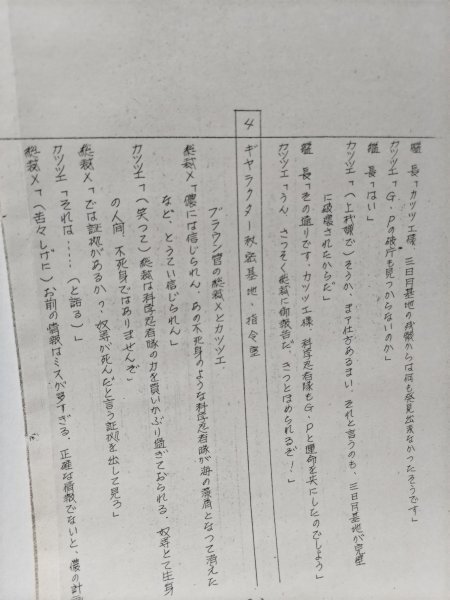 艦　長「カッツェ様、三日月基地の残骸からは何も発見出来なかったそうです」
カッツェ「Ｇ・Ｐの破片も見つからないのか」
艦　長「はい」
カッツェ「（上機嫌で）そうか、まず仕方あるまい、それと言うのも、三日月基地が完璧
に破壊されたからだ」
艦　長「その通りです、カッツェ様、科学忍者隊もＧ・Ｐと運命を共にしたのでしょう」
カッツェ「うん、さっそく総裁に御報告だ、きっとほめられるぞ！」
４　ギャラクター秘密基地・指令室
ブラウン管の総裁Ｘとカッツェ
総裁Ｘ「儂には信じられん、あの不死身のような科学忍者隊が海の藻屑となって消えた
など、とうてい信じられん」
カッツェ「（笑って）総裁は科学忍者隊の力を買いかぶり過ぎておられる、奴等とて生身
の人間、不死身ではありませんぞ」
総裁Ｘ「では証拠があるか？、奴等が死んだと言う証拠を出して見ろ」
カッツェ「それは……（と詰る）」
総裁Ｘ「（苦々しげに）お前の情報はミスが多すぎる、正確な情報でないと、儂の計画
が